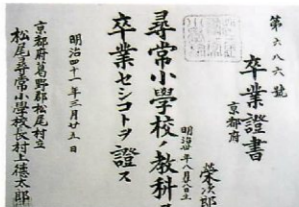 第六八六號
卒業證書
京都府
榮次郎
明治廿年八月八日生
尋常小學校ノ教科ヲ
卒業セシコトヲ證ス
明治四十一年三月廿五日
京都府葛野郡松尾村立
松尾尋常小學校長村上德太郎